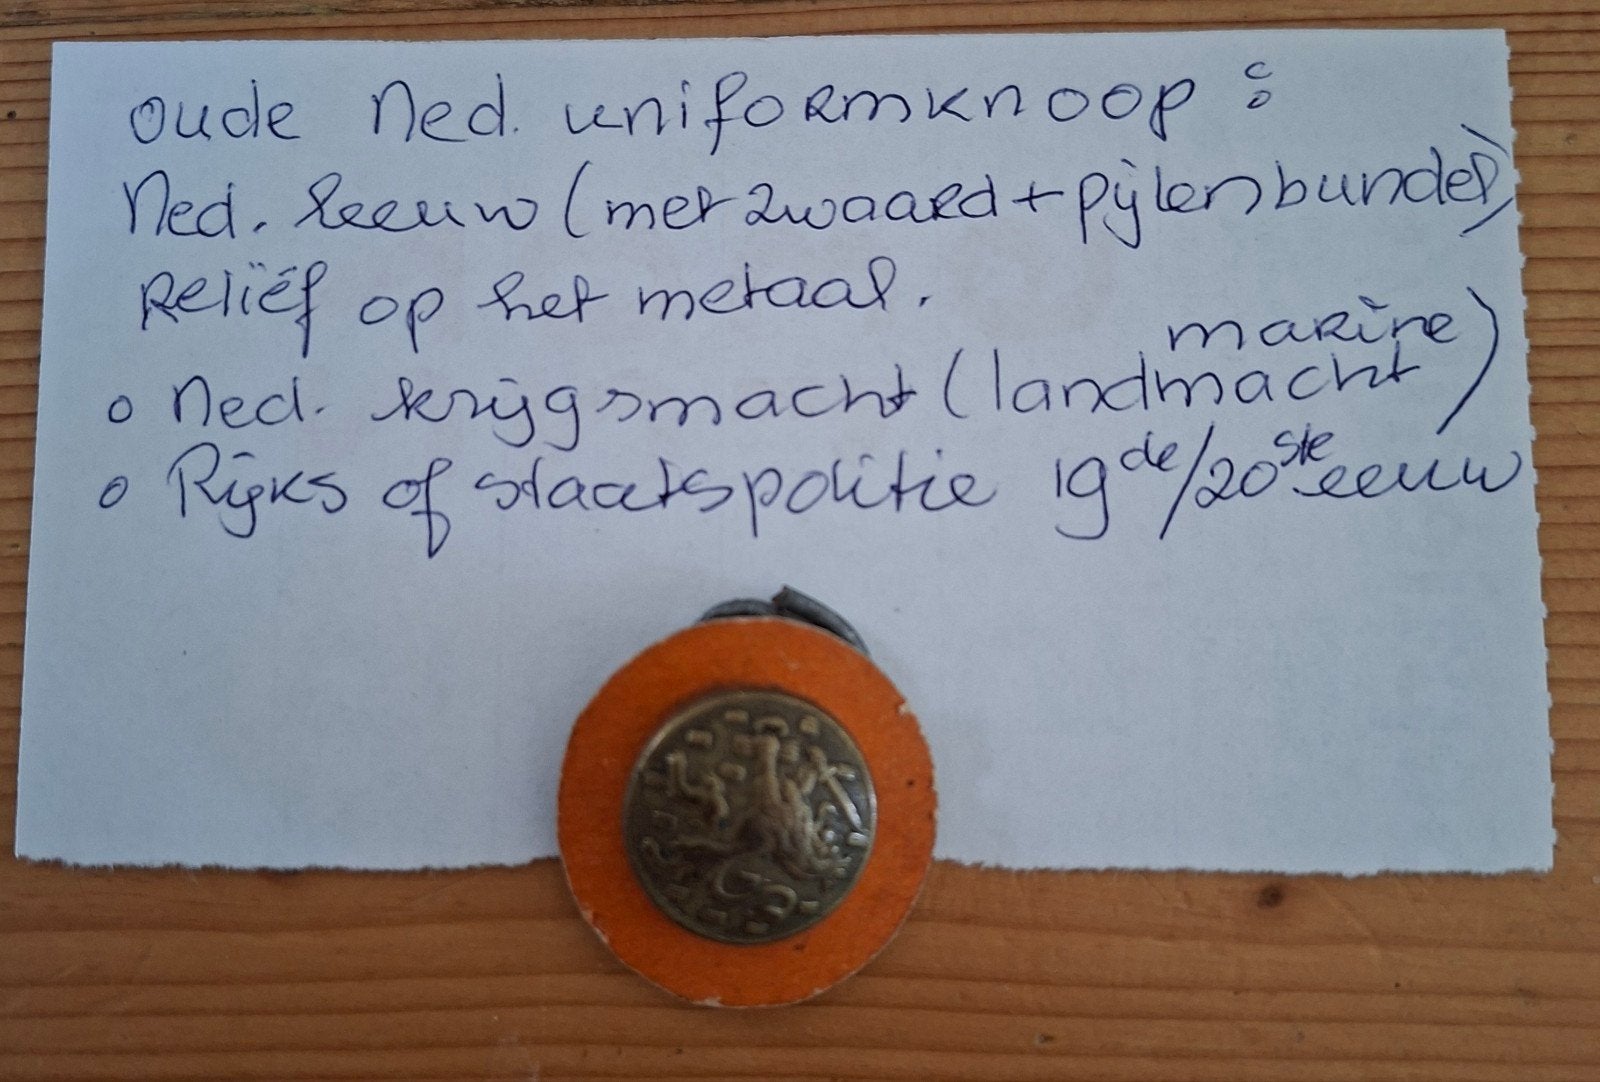 oude Ned. uniformknoop :
Ned. leeuw (met zwaard + pijlenbundel)
Reliëf op het metaal.
marine
o Ned. krijgsmacht (landmacht)
o Rijks of staatspolitie 19de/20ste eeuw